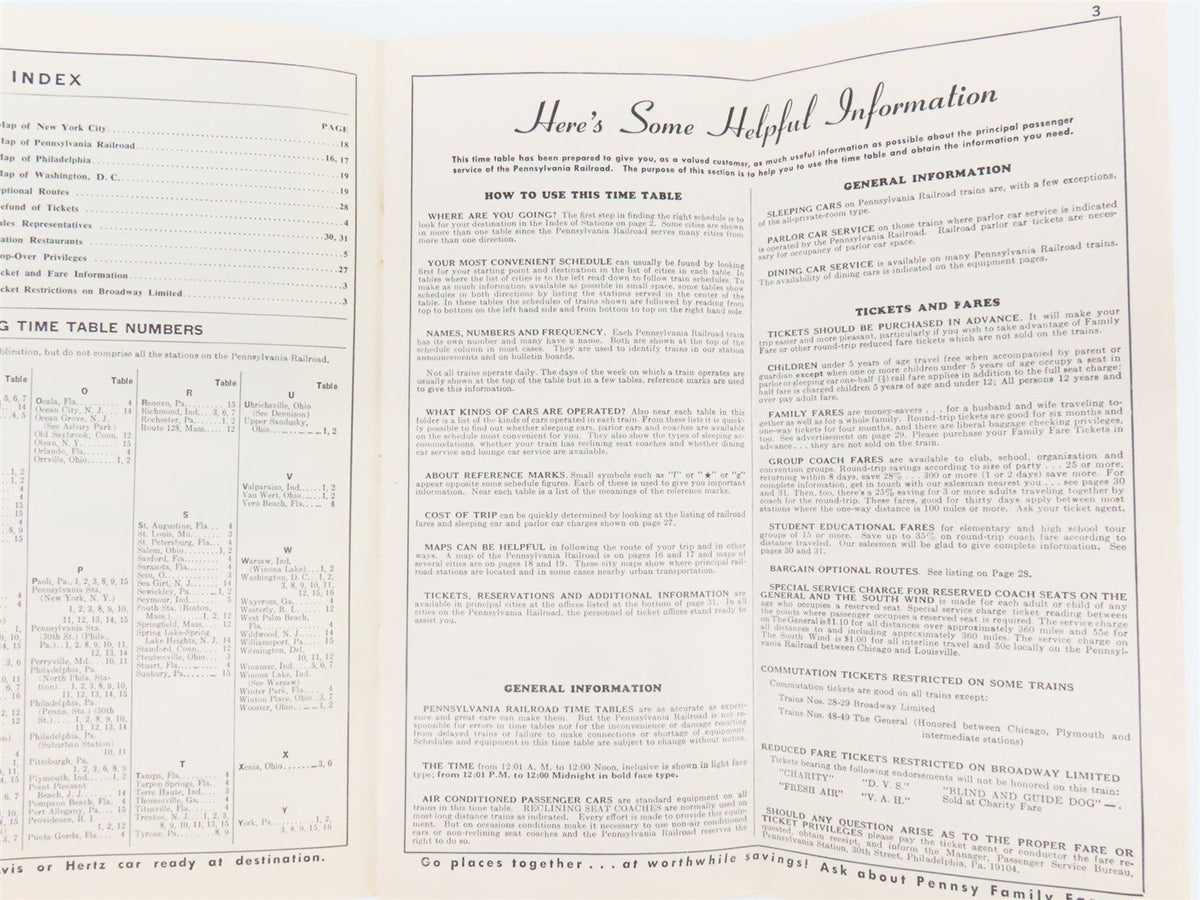 INDEX
PAGE
Map of New York City 18
Map of Pennsylvania Railroad 16, 17
Map of Philadelphia 19
Map of Washington, D. C. 19
Optional Routes 28
Refund of Tickets 4
Sales Representatives 30, 31
Station Restaurants 5
Stop-Over Privileges 27
Ticket and Fare Information 3
Ticket Restrictions on Broadway Limited 3
TIME TABLE NUMBERS
publication, but do not comprise all the stations on the Pennsylvania Railroad.
Table
5, 6, 7
14
4, 5
1, 2
4
4
15
15
4
8, 9
15
Table
O
Ocala, Fla. 4
Ocean City, N. J. 14
Ocean Grove, N. J.
(See Asbury Park)
Old Saybrook, Conn. 12
Olean, N. Y. 15
Orlando, Fla. 4
Orrville, Ohio 1, 2
P
Paoli, Pa. 1, 2, 3, 8, 9, 15
Pennsylvania Sta.
(New York, N. Y.)
1, 2, 3, 8, 9, 10,
11, 12, 13, 14, 15
Pennsylvania Sta.
(30th St.) (Phila.,
Pa.) 1, 2, 8, 9, 10, 11,
12, 13, 14
Perryville, Md. 10, 11
Philadelphia, Pa.
(North Phila. Sta-
tion) 1, 2, 3, 8, 9, 10,
11, 12, 13, 14, 15
Philadelphia, Pa.
(Penna. Sta.) (30th
St.) 1, 2, 8, 9, 10,
11, 12, 13, 14
Philadelphia, Pa.
(Suburban Station)
10, 11
Pittsburgh, Pa.
1, 2, 3, 6, 8, 9
Plymouth, Ind. 1, 2
Point Pleasant
Beach, J. J. 14
Pompano Beach, Fla. 4
Port Allegany, Pa. 15
Providence, R. I.
1, 2, 12
Punta Gorda, Fla. 4
Table
R
Renovo, Pa. 15
Richmond, Ind. 3, 6, 7
Rochester, Pa. 1, 2
Route 128, Mass. 12
S
St. Augustine, Fla. 4
St. Louis, Mo. 3
St. Petersburg, Fla. 4
Salem, Ohio 1, 2
Sanford, Fla. 4
Sarasota, Fla. 4
Scio, O. 3
Sea Girt, N. J. 14
Sewickley, Pa. 1, 2
Seymour, Ind. 5
South Sta. (Boston,
Mass.) 1, 2, 12
Springfield, Mass. 12
Spring Lake-Spring
Lake Heights, N. J. 14
Stamford, Conn. 12
Steubenville, Ohio 3
Stuart, Fla. 4
Sunbury, Pa. 15
T
Tampa, Fla. 4
Tarpon Springs, Fla. 4
Terre Haute, Ind. 3
Thomasville, Ga. 4
Titusville, Fla. 4
Trenton, N. J. 1, 2, 3,
8, 9, 10, 11, 13, 15
Tyrone, Pa. 8, 9
Table
U
Uhrichsville, Ohio
(See Dennison)
Upper Sandusky,
Ohio 1, 2
V
Valparaiso, Ind. 1, 2
Van Wert, Ohio 1, 2
Vero Beach, Fla. 4
W
Warsaw, Ind.
(Winona Lake) 1, 2
Washington, D. C. 1, 2,
3, 8, 9, 10, 11,
12, 15, 16
Waycross, Ga. 4
Westerly, R. I. 12
West Palm Beach,
Fla. 4
Wildwood, N. J. 14
Williamsport, Pa. 15
Wilmington, Del.
10, 11, 12
Winamac, Ind. 5, 6, 7
Winona Lake, Ind.
(See Warsaw)
Winter Park, Fla. 4
Winton Place, Ohio 3, 7
Wooster, Ohio 1, 2
X
Xenia, Ohio 3, 6
Y
York, Pa. 1, 2,
3, 8, 9, 15, 16
Avis or Hertz car ready at destination.
3
Here's Some Helpful Information
This time table has been prepared to give you, as a valued customer, as much useful information as possible about the principal passenger
service of the Pennsylvania Railroad. The purpose of this section is to help you to use the time table and obtain the information you need.
HOW TO USE THIS TIME TABLE
WHERE ARE YOU GOING? The first step in finding the right schedule is to
look for your destination in the Index of Stations on page 2. Some cities are shown
in more than one table since the Pennsylvania Railroad serves many cities from
more than one direction.
YOUR MOST CONVENIENT SCHEDULE can usually be found by looking
first for your starting point and destination in the list of cities in each table. In
tables where the list of cities is to the left read down to follow train schedules. To
make as much information available as possible in small space, some tables show
schedules in both directions by listing the stations served in the center of the
table. In these tables the schedules of trains shown are followed by reading from
top to bottom on the left hand side and from bottom to top on the right hand side.
NAMES, NUMBERS AND FREQUENCY. Each Pennsylvania Railroad train
has its own number and many have a name. Both are shown at the top of the
schedule column in most cases. They are used to identify trains in our station
announcements and on bulletin boards.
Not all trains operate daily. The days of the week on which a train operates are
usually shown at the top of the table but in a few tables, reference marks are used
to give this information.
WHAT KINDS OF CARS ARE OPERATED? Also near each table in this
folder is a list of the kinds of cars operated in each train. From these lists it is quick-
ly possible to find out whether sleeping cars, parlor cars and coaches are available
on the schedule most convenient for you. They also show the types of sleeping ac-
commodations, whether the train has reclining seat coaches and whether dining
car service and lounge car service are available.
ABOUT REFERENCE MARKS. Small symbols such as "f" or "★" or "g"
appear opposite some schedule figures. Each of these is used to give you important
information. Near each table is a list of the meanings of the reference marks.
COST OF TRIP can be quickly determined by looking at the listing of railroad
fares and sleeping car and parlor car charges shown on page 27.
MAPS CAN BE HELPFUL in following the route of your trip and in other
ways. A map of the Pennsylvania Railroad is on pages 16 and 17 and maps of
several cities are on pages 18 and 19. These city maps show where principal rail-
road stations are located and in some cases nearby urban transportation.
TICKETS, RESERVATIONS AND ADDITIONAL INFORMATION are
available in principal cities at the offices listed at the bottom of page 31. In all
cities on the Pennsylvania Railroad, the personnel of ticket offices stand ready to
assist you.
GENERAL INFORMATION
PENNSYLVANIA RAILROAD TIME TABLES are as accurate as experi-
ence and great care can make them. But the Pennsylvania Railroad is not re-
sponsible for errors in time tables nor for the inconvenience or damage resulting
from delayed trains or failure to make connections or shortage of equipment.
Schedules and equipment in this time table are subject to change without notice.
THE TIME from 12:01 A. M. to 12:00 Noon, inclusive is shown in light face
type; from 12:01 P.M. to 12:00 Midnight in bold face type.
AIR CONDITIONED PASSENGER CARS are standard equipment on all
trains in this time table. RECLINING SEAT COACHES are normally used on
most long distance trains as indicated. Every effort is made to provide this equip-
ment. But on occasions conditions make it necessary to use non-air conditioned
cars or non-reclining seat coaches and the Pennsylvania Railroad reserves the
right to do so.
GENERAL INFORMATION
SLEEPING CARS on Pennsylvania Railroad trains are, with a few exceptions,
of the all-private-room type.
PARLOR CAR SERVICE on those trains where parlor car service is indicated
is operated by the Pennsylvania Railroad. Railroad parlor car tickets are neces-
sary for occupancy of parlor car space.
DINING CAR SERVICE is available on many Pennsylvania Railroad trains.
The availability of dining cars is indicated on the equipment pages.
TICKETS AND FARES
TICKETS SHOULD BE PURCHASED IN ADVANCE. It will make your
trip easier and more pleasant, particularly if you wish to take advantage of Family
Fare or other round-trip reduced fare tickets which are not sold on the trains.
CHILDREN under 5 years of age travel free when accompanied by parent or
guardian except when one or more children under 5 years of age occupy a seat in
parlor or sleeping car one-half (½) rail fare applies in addition to the full seat charge;
half fare is charged children 5 years of age and under 12; All persons 12 years and
over pay adult fare.
FAMILY FARES are money-savers . . . for a husband and wife traveling to-
gether as well as for a whole family. Round-trip tickets are good for six months and
one-way tickets for four months, and there are liberal baggage checking privileges,
too. See advertisement on page 29. Please purchase your Family Fare Tickets in
advance . . . they are not sold on the train.
GROUP COACH FARES are available to club, school, organization and
convention groups. Round-trip savings according to size of party . . . 25 or more,
returning within 8 days, save 28% . . . 300 or more (1 or 2 days) save more. For
complete information, get in touch with our salesman nearest you . . . see pages 30
and 31. Then, too, there's a 25% saving for 3 or more adults traveling together by
coach for the round-trip. These fares, good for thirty days, apply between most
stations where the one-way distance is 100 miles or more. Ask your ticket agent.
STUDENT EDUCATIONAL FARES for elementary and high school tour
groups of 15 or more. Save up to 35% on round-trip coach fare according to
distance traveled. Our salesmen will be glad to give complete information. See
pages 30 and 31.
BARGAIN OPTIONAL ROUTES. See listing on Page 28.
SPECIAL SERVICE CHARGE FOR RESERVED COACH SEATS ON THE
GENERAL AND THE SOUTH WIND is made for each adult or child of any
age who occupies a reserved seat. Special service charge ticket reading between
the points where passenger occupies a reserved seat is required. The service charge
on The General is $1.10 for all distances over approximately 360 miles and 55c for
all distances to and including approximately 360 miles. The service charge on
The South Wind is $1.00 for all interline travel and 50c locally on the Pennsyl-
vania Railroad between Chicago and Louisville.
COMMUTATION TICKETS RESTRICTED ON SOME TRAINS
Commutation tickets are good on all trains except:
Trains Nos. 28-29 Broadway Limited
Trains Nos. 48-49 The General (Honored between Chicago, Plymouth and
intermediate stations)
REDUCED FARE TICKETS RESTRICTED ON BROADWAY LIMITED
Tickets bearing the following endorsements will not be honored on this train:
"CHARITY" "D. V. S." "BLIND AND GUIDE DOG"—
"FRESH AIR" "V. A. H." Sold at Charity Fare
SHOULD ANY QUESTION ARISE AS TO THE PROPER FARE OR
TICKET PRIVILEGES please pay the ticket agent or conductor the fare re-
quested, obtain receipt, and inform the Manager, Passenger Service Bureau,
Pennsylvania Station, 30th Street, Philadelphia, Pa. 19104.
Go places together . . . at worthwhile savings! Ask about Pennsy Family